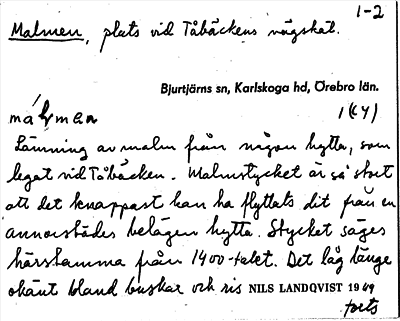 1-2
Malmen, plats vid Tåbäckens vägskäl.
Bjurtjärns sn, Karlskoga hd, Örebro län.
1(64)
málmen
Lämning av malm från någon hytta, som
legat vid Tåbäcken. Malmstycket är så stort
att det knappast kan ha flyttats dit från en
annorstädes belägen hytta. Stycket säges
härstamma från 1400-talet. Det låg länge
okänt bland buskar och ris NILS LANDQVIST 1969
forts